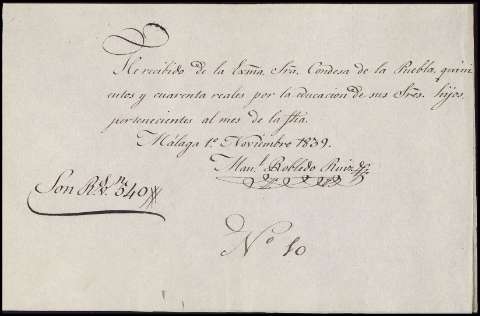 He recibido de la Exma. Sra. Condesa de la Puebla, quini
entos y cuarenta reales por la educacion de sus Sres. hijos,
pertenecientes al mes de la fha.
Málaga 1º. Noviembre 1839.
Man.l Robledo Ruiz
Son Rs. vn. 540
Nº 10